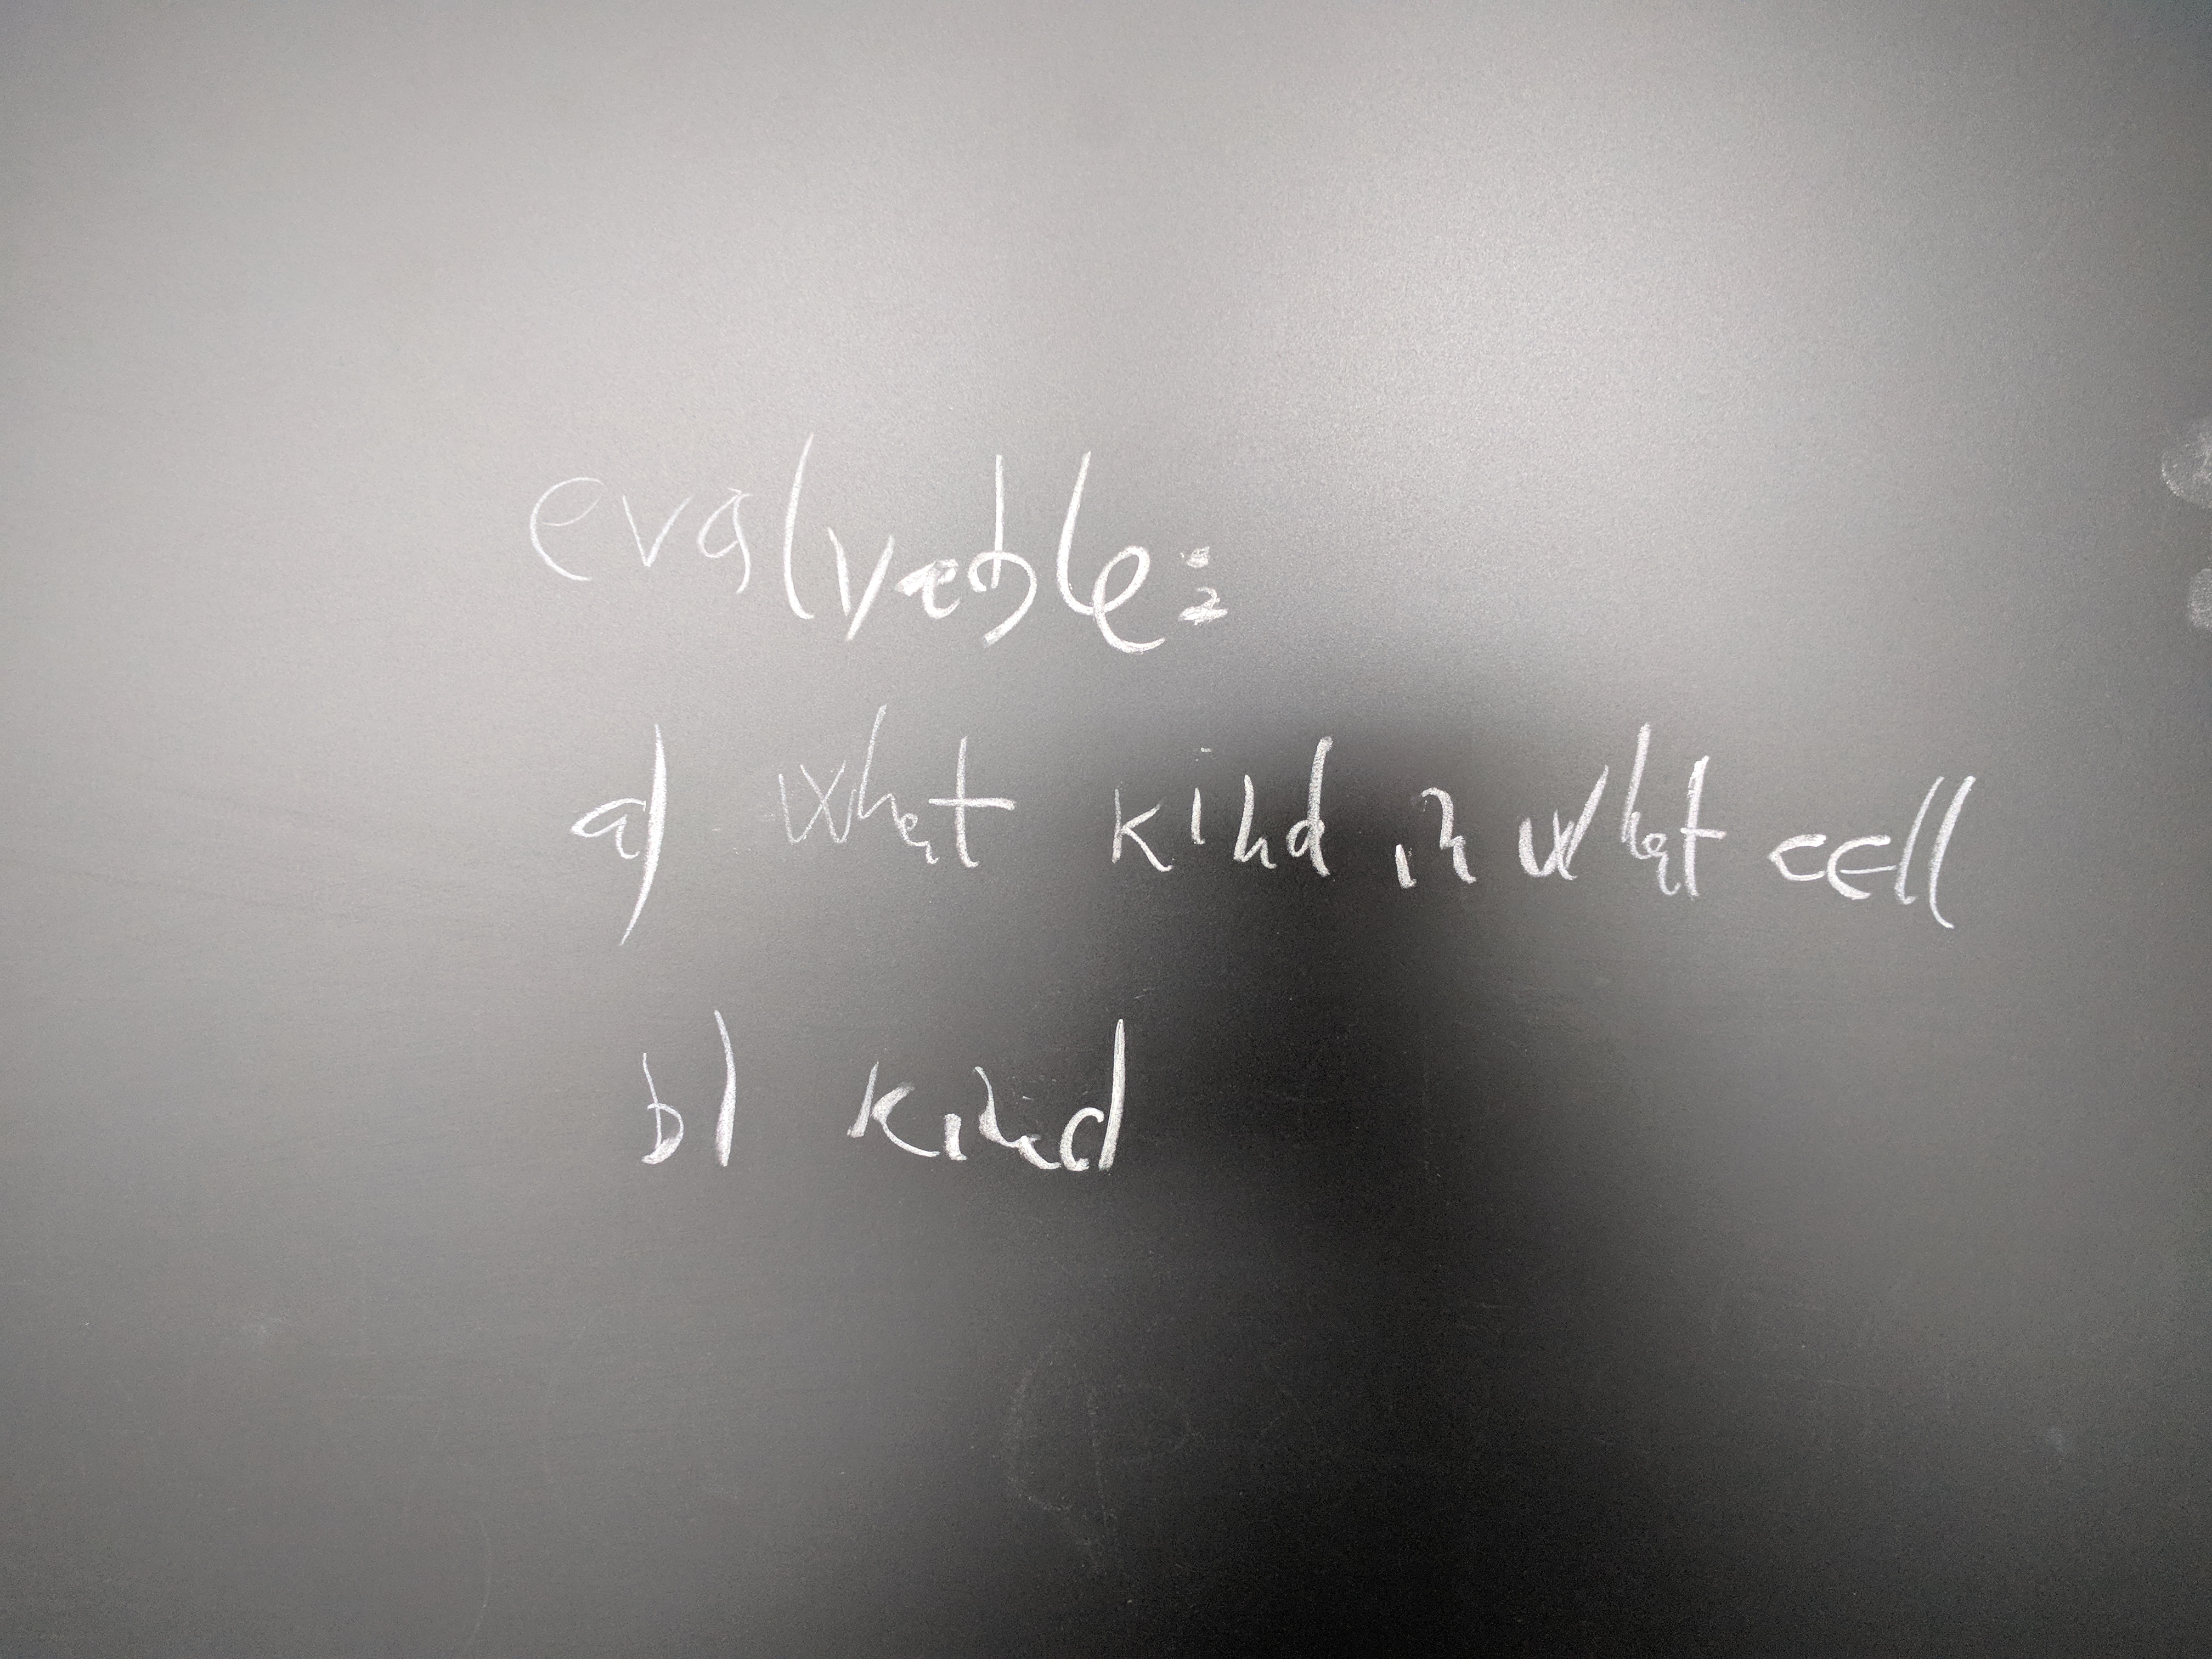 evaluable:
a) what kind in what cell
b) kind